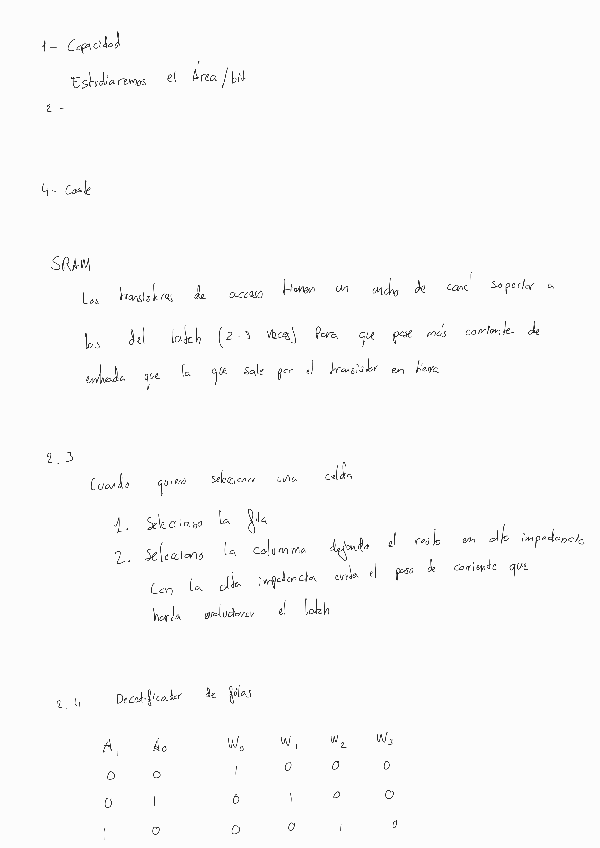 1- Capacidad
Estudiaremos el Área/bit
2-
4- Coste
SRAM
Los transistores de acceso tienen un ancho de canal superior a
los del latch (2-3 veces) Para que pase más corriente de
entrada que la que sale por el transistor en tierra
2.3
Cuando quiero seleccionar una celda
1. Selecciono la fila
2. Selecciono la columna dejando el resto en alta impedancia
Con la alta impedancia evita el paso de corriente que
haría evolucionar el latch
2.4 Decodificador de filas
A1 A0 W0 W1 W2 W3
0 0 1 0 0 0
0 1 0 1 0 0
1 0 0 0 1 0